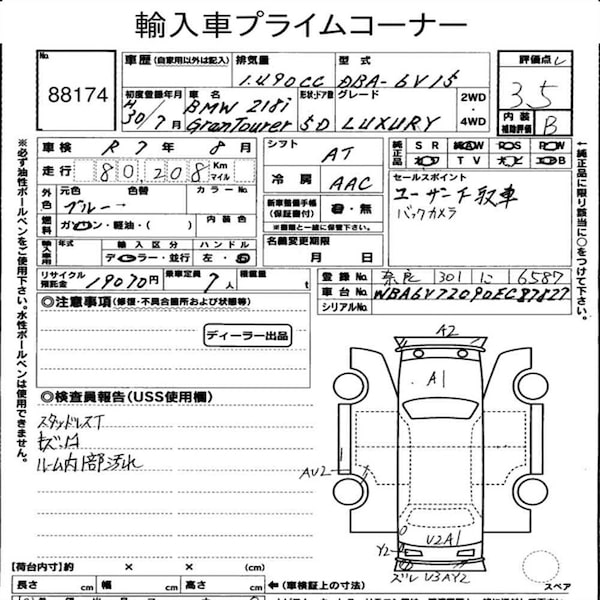 輸入車プライムコーナー
No. 88174
車歴 (自家用以外は記入)
排気量 1.490cc
型式 DBA-6V15
評価点 3.5
内装補助評価 B
初度登録年月 H30年7月
車名 BMW 218i GranTourer
形状・ドア数 5D
グレード LUXURY
2WD・4WD
車検 R7年8月
シフト AT
純正品 SR AW PS PW
TV
走行 80208 Km マイル
冷房 AAC
セールスポイント
バックカメラ
外色 元色 ブルー→ 色替 カラーNo.
新車整備手帳(保証書付) 有・無
※書面と一緒に保管下さい。
燃料 ガソリン・軽油・( ) 内装色
名義変更期限 月 日
輸入車用 年式 輸入区分 ディーラー・並行 ハンドル 左・右
リサイクル預託金 19070円
乗車定員 7人
積載量 t
登録No. 奈良 301 に 6587
車台No. WBA6V72090EC87827
シリアルNo.
◎注意事項 (修復・不具合箇所および状態等)
ディーラー出品
◎検査員報告(USS使用欄)
スタッドレスT
キズ・凹
ルーム内部汚れ
A2
A1
AU2
U2A1
Y2
ズレ U3AY2
スペア
【荷台内寸】約 × × (cm)
長さ cm 幅 cm 高さ cm ←(車検証上の寸法)
※必ず油性ボールペンをご使用下さい。水性ボールペンは使用できません。
←純正品に限り該当に○をつけて下さい。